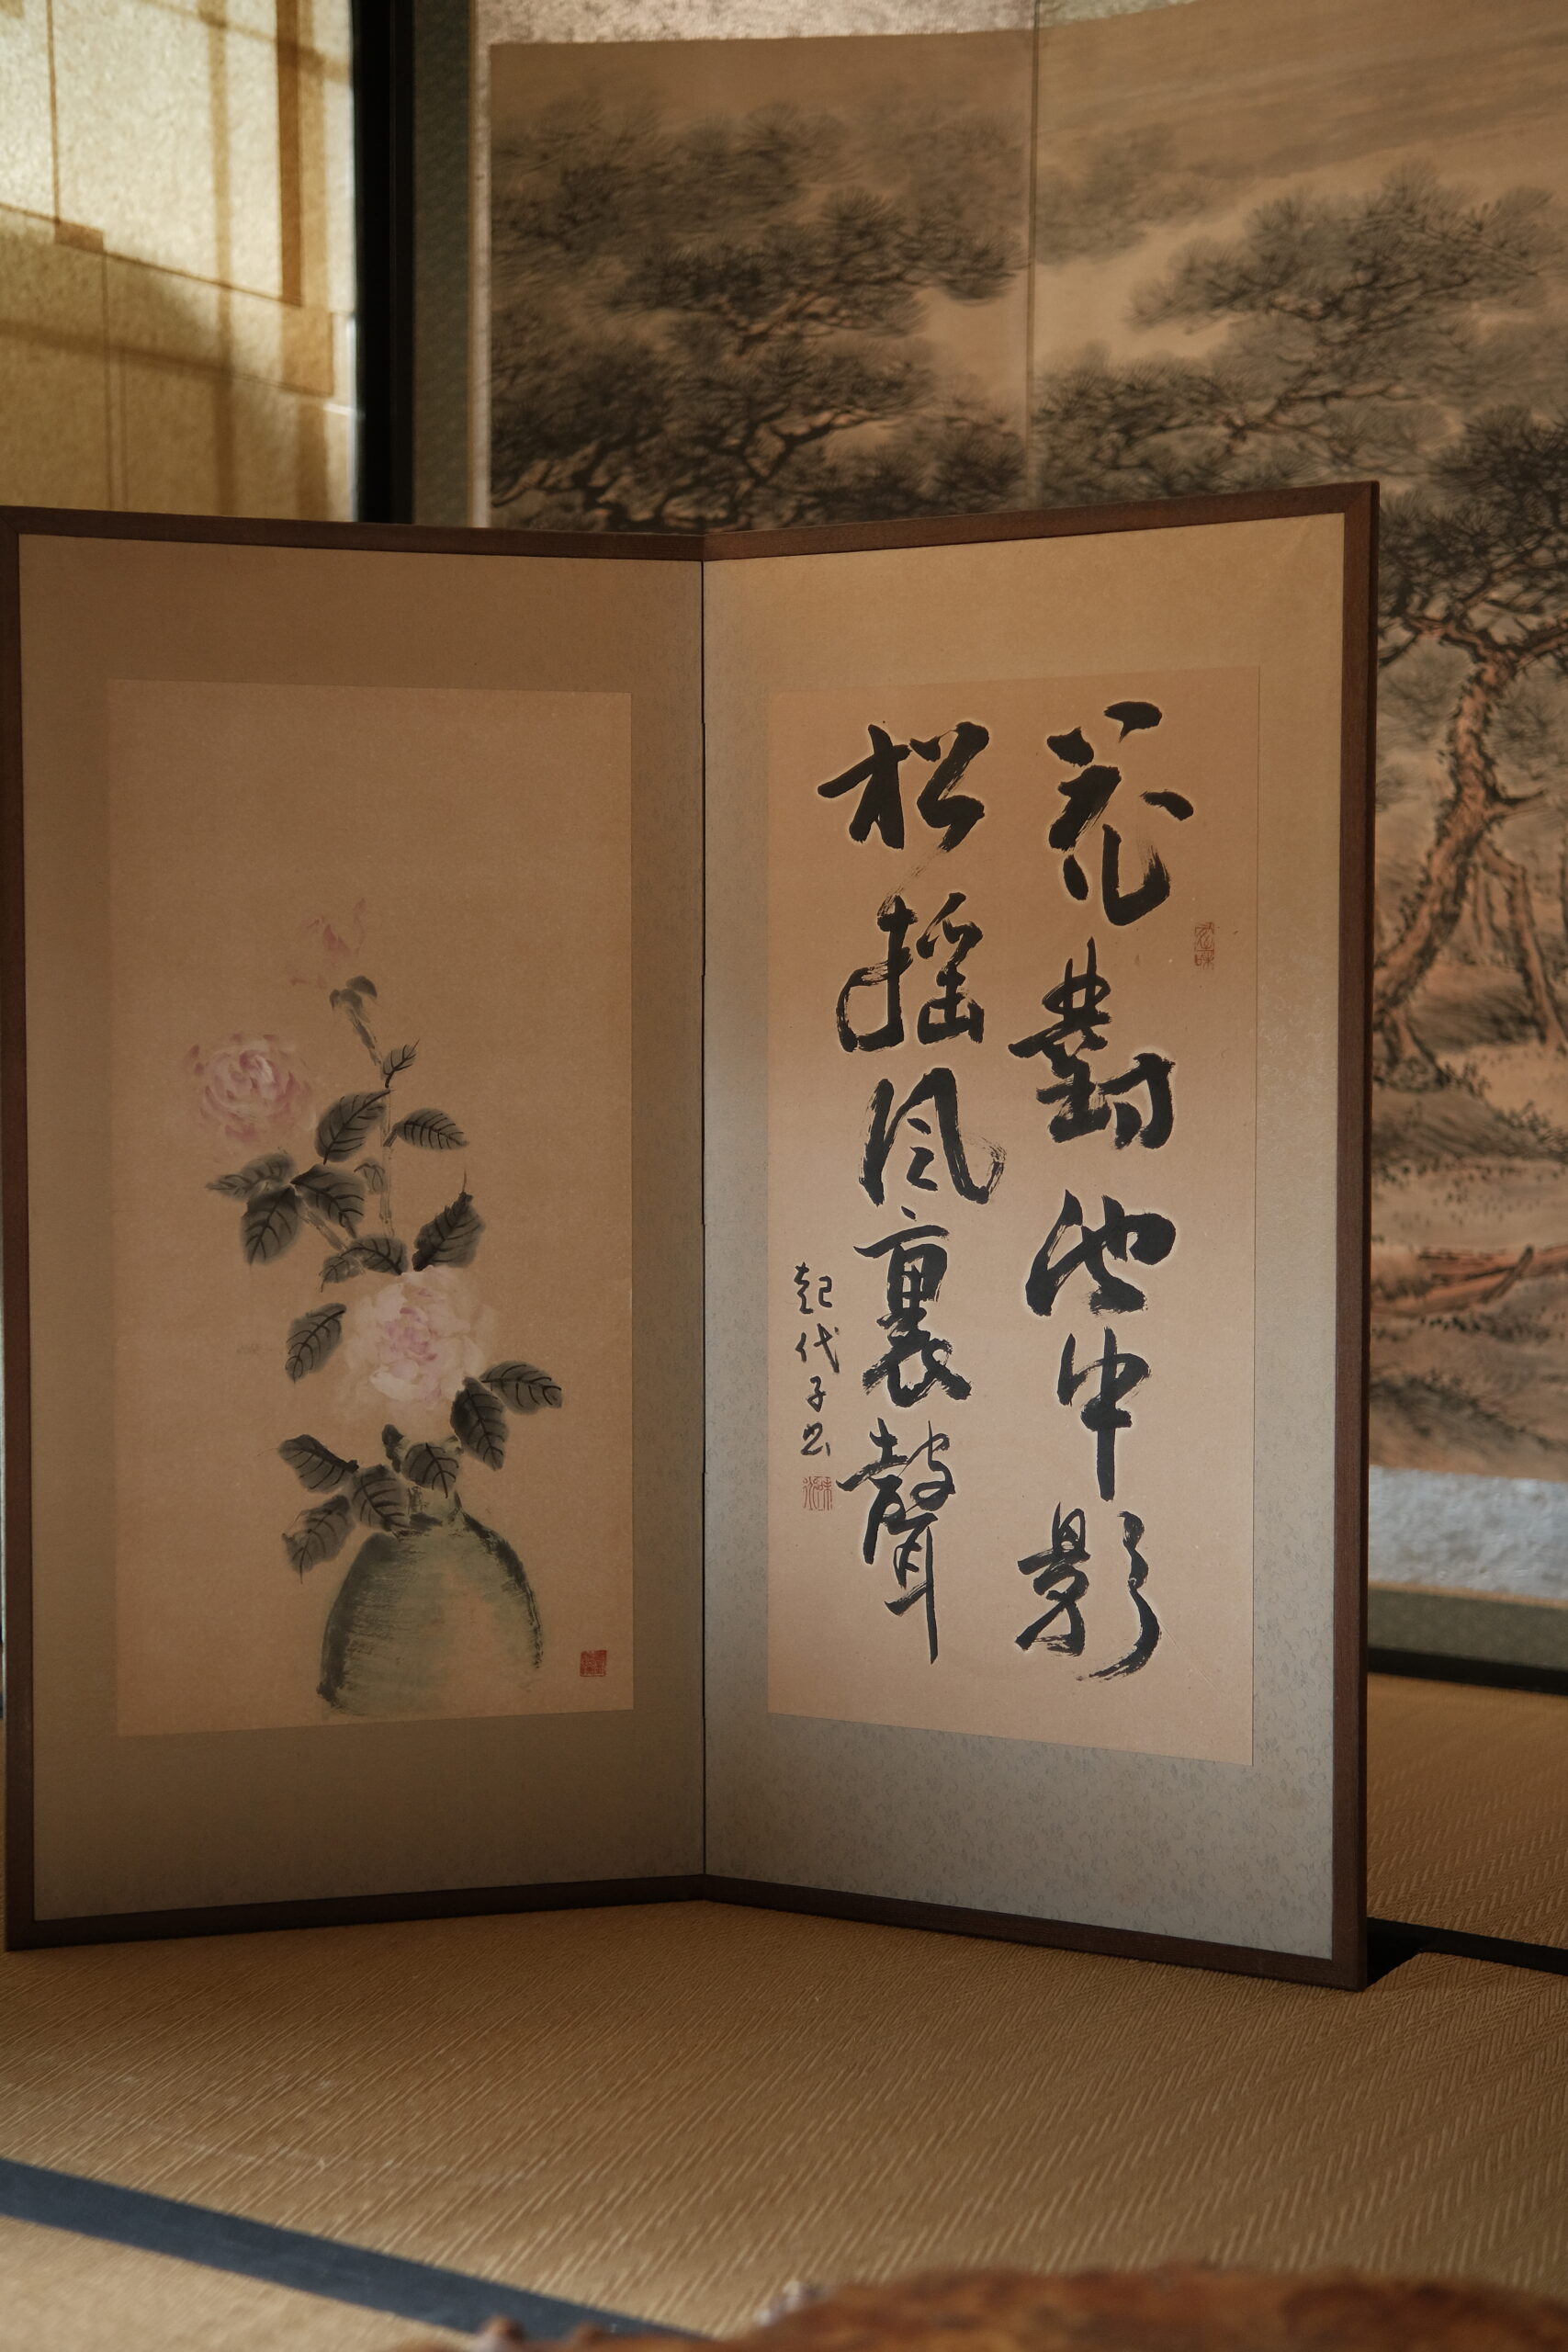 花對池中影
松搖風裏聲
起代子書